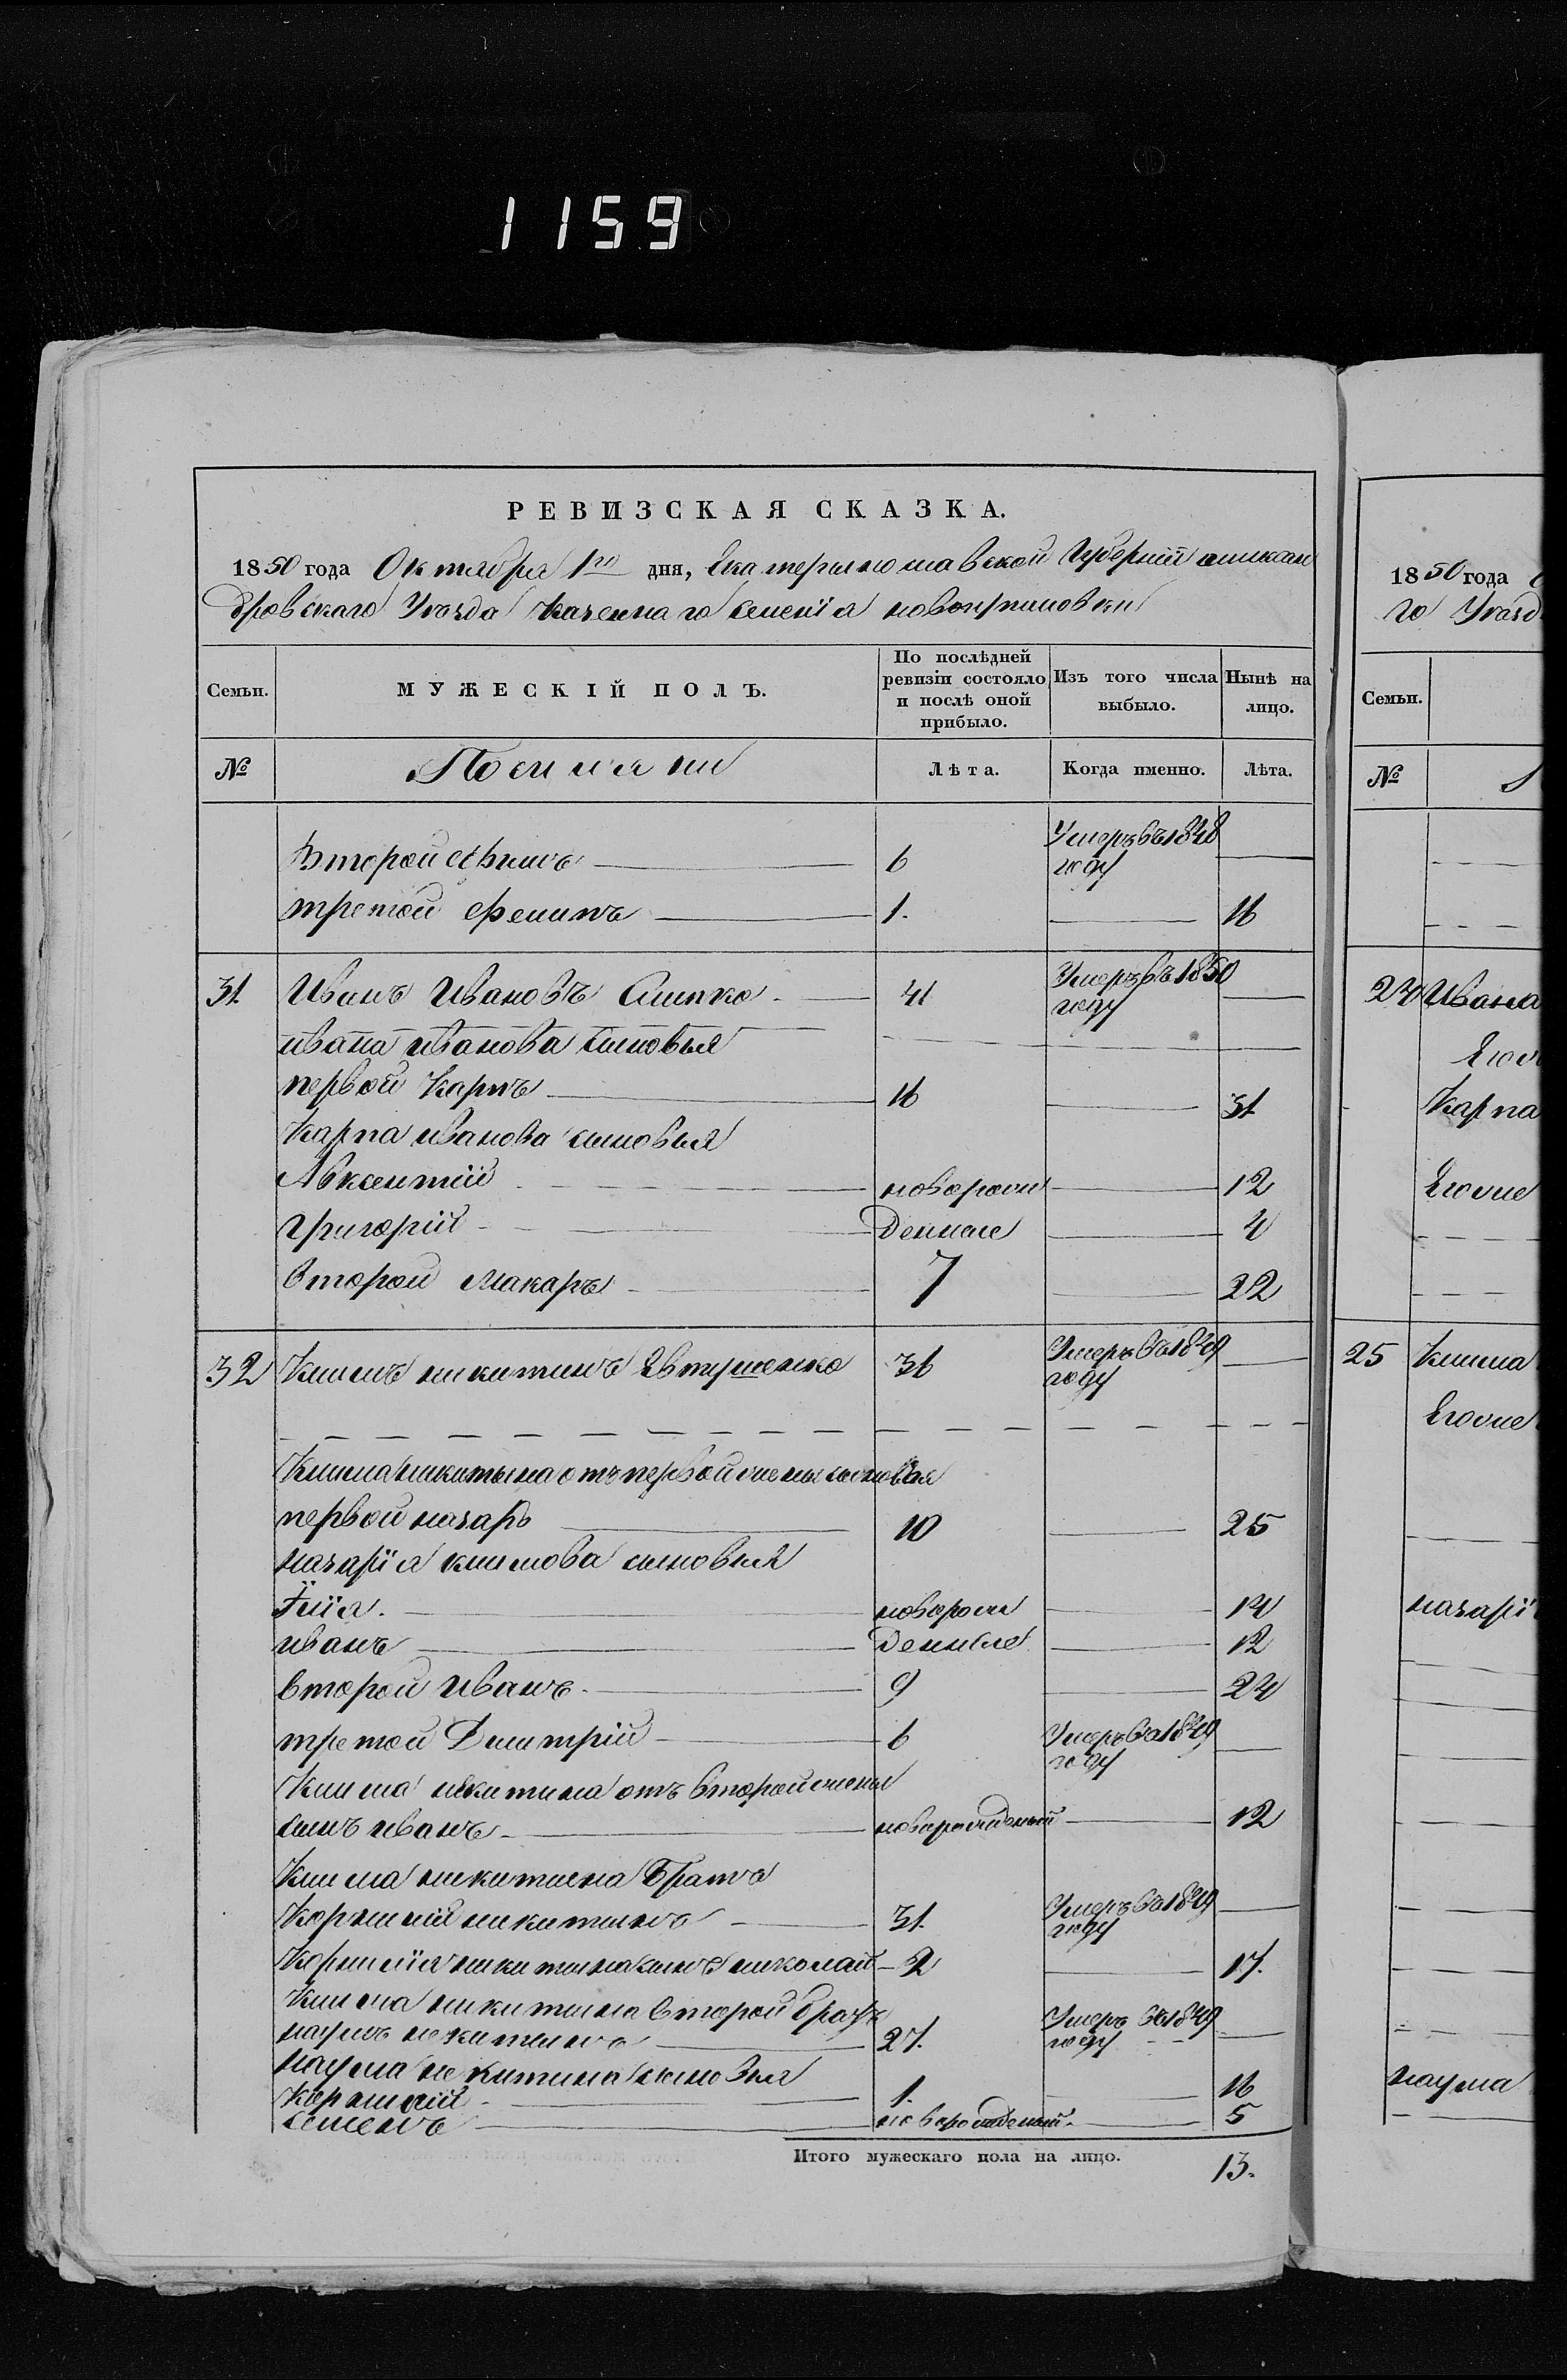 1159
РЕВИЗСКАЯ СКАЗКА.
1850 года Октября 1го дня, Екатеринославской Губерніи Алексан
дровскаго Уезда казеннаго селенія
Семьи.
МУЖЕСКІЙ ПОЛЪ.
По послѣдней ревизіи состояло и послѣ оной прибыло.
Изъ того числа выбыло.
Нынѣ на лицо.
№
Поселяни
Лѣта.
Когда именно.
Лѣта.
Второй 6 Умеръ въ 1848 году
третой Филипъ 1. 16
31. Иванъ Ивановъ 41 Умеръ въ 1850 году
ивана иванова сыновья
первой Карпъ 16 31
Карпа иванова сыновья
Авксентій новорож 12
григорій денные 4
второй Макаръ 7 22
32 Климъ никитинъ Евтушенко 36 Умеръ въ 1849 году
Клима никитына отъ первой жены сыновья
первой назаръ 10 25
назарія климова сыновья
Ілія. новорож 14
иванъ денные 12
второй иванъ 9 24
третой Димитрій 6 Умеръ въ 1849 году
Клима никитина отъ второй жены
сынъ иванъ новорожденый 12
Клима никитина Братъ
Корнилій никитинъ 31. Умеръ въ 1849 году
Корнилія никитина сынъ николай 2 17.
Клима никитина второй братъ
наумъ никитинъ 27. Умеръ въ 1849 году
наума никитина сыновья
Корнилій 1. 16
семенъ новорожденый 5
Итого мужескаго пола на лицо. 13.
1850 года
го Уезд
Семьи.
№
24 Ивана
Карпа
Егоже
25 Клима
Егоже
назарі
наума